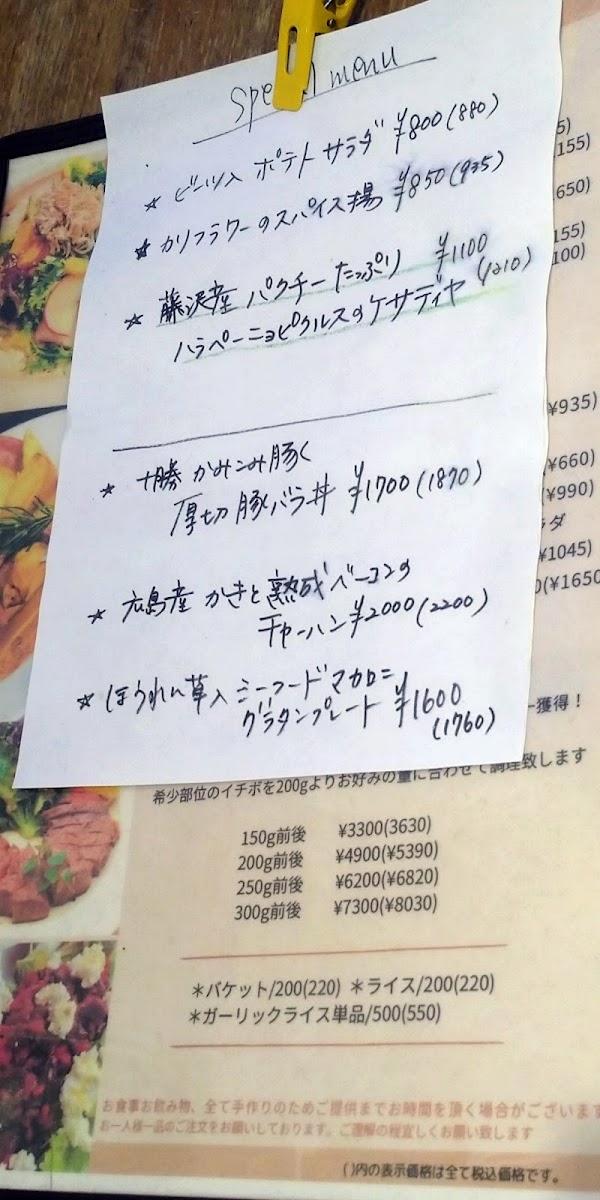 special menu
☆ ビーツ入 ポテトサラダ ¥800(880)
☆ カリフラワーのスパイス揚 ¥850(935)
☆ 藤沢産 パクチーたっぷり ¥1100
ハラペーニョピクルスのケサディヤ (1210)
☆ 十勝 かみこみ豚く
厚切 豚バラ丼 ¥1700(1870)
☆ 広島産 かきと熟成ベーコンの
チャーハン ¥2000(2200)
☆ ほうれん草入 シーフードマカロニ
グラタンプレート ¥1600
(1760)
5)
155)
650)
155)
100)
(¥935)
(¥660)
(¥990)
ラダ
(¥1045)
(¥1650
ー獲得！
希少部位のイチボを200gよりお好みの量に合わせて調理致します
150g前後 ¥3300(3630)
200g前後 ¥4900(¥5390)
250g前後 ¥6200(¥6820)
300g前後 ¥7300(¥8030)
＊バケット/200(220) ＊ライス/200(220)
＊ガーリックライス単品/500(550)
お食事お飲み物、全て手作りのためご提供までお時間を頂く場合がございます
お一人様一品のご注文をお願いしております。ご理解の程宜しくお願い致します
( )内の表示価格は全て税込価格です。